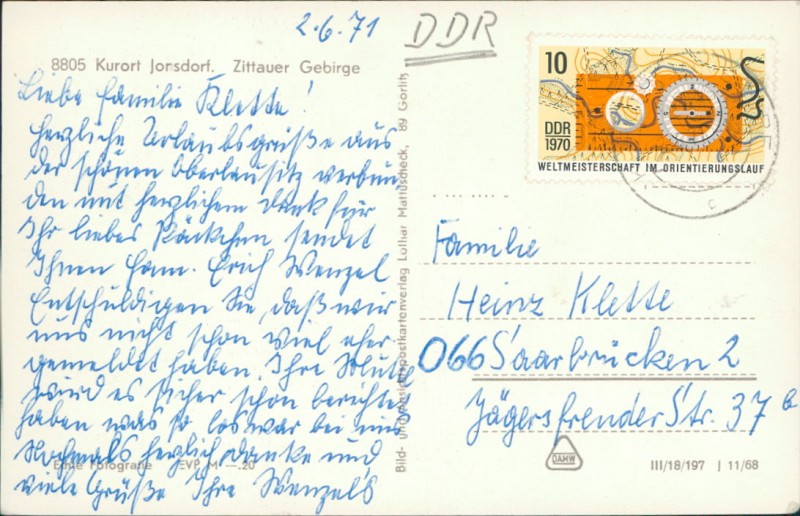 2.6.71
DDR
8805 Kurort Jonsdorf. Zittauer Gebirge
Liebe Familie Klette!
Herzliche Urlaubsgrüße aus
der schönen Oberlausitz verbun
den mit herzlichem Dank für
Ihr liebes Päckchen sendet
Ihnen Fam. Erich Wenzel
Entschuldigen Sie daß wir
uns nicht schon viel eher
gemeldet haben. Ihre Mutter
wird es sicher schon berichtet
haben was so los war bei uns
Nochmals herzlich danke und
viele Grüße Ihre Wenzels
Echte Fotografie EVP M —.20
Bild- und Ansichtspostkartenverlag Lothar Mattuscheck, 89 Görlitz
10
DDR
1970
WELTMEISTERSCHAFT IM ORIENTIERUNGSLAUF
Familie
Heinz Klette
066 Saarbrücken 2
Jägersfreuder Str. 37 b
DAMW
III/18/197 J 11/68